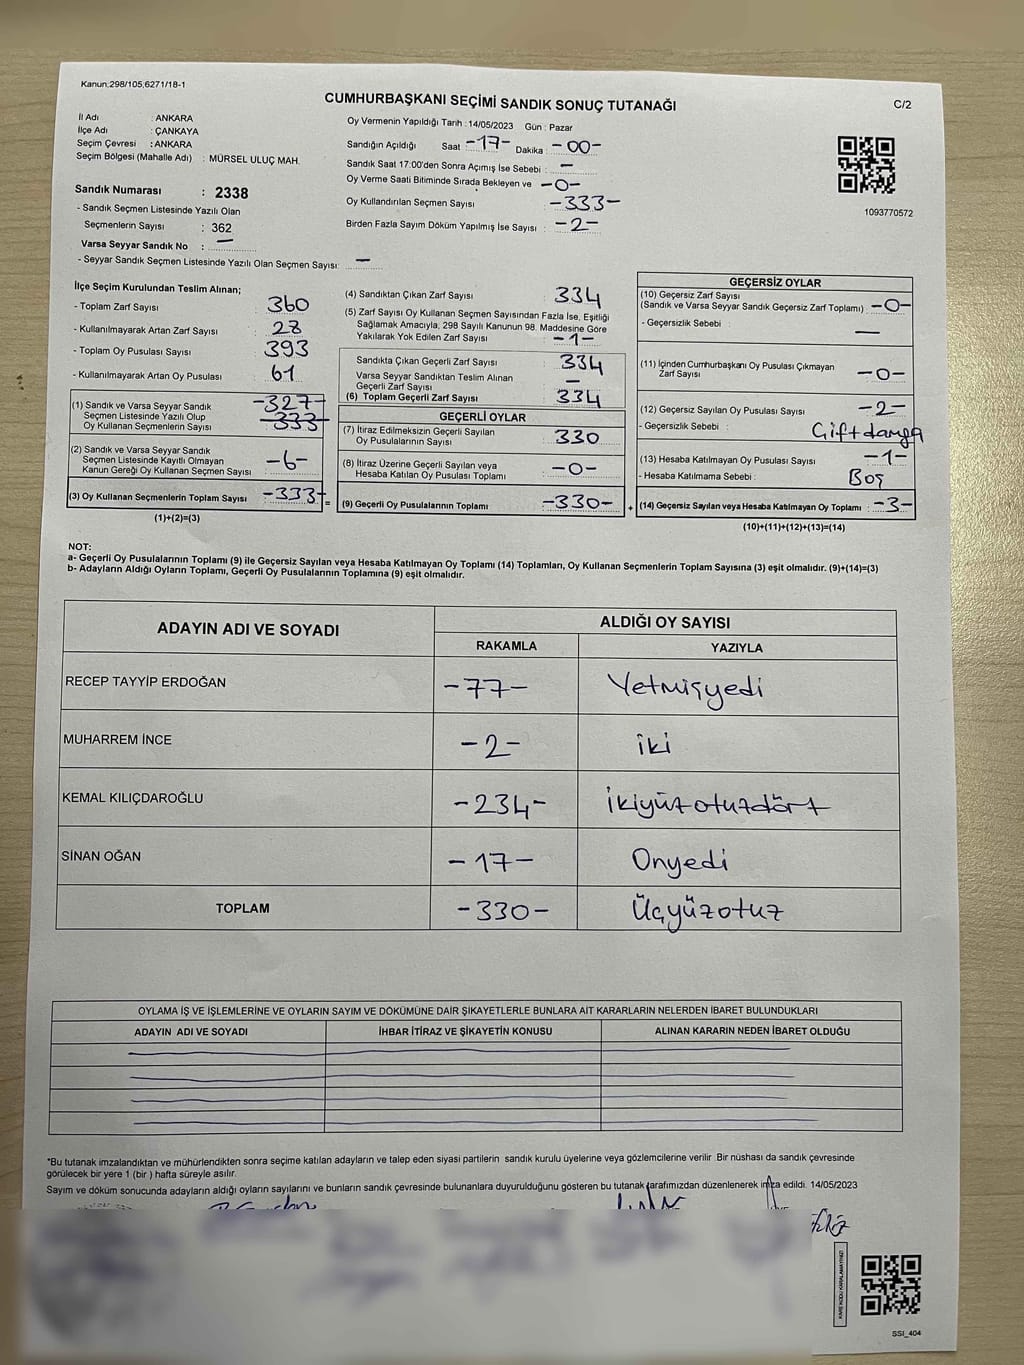 Kanun:298/105,6271/18-1
CUMHURBAŞKANI SEÇİMİ SANDIK SONUÇ TUTANAĞI
C/2
İl Adı : ANKARA
İlçe Adı : ÇANKAYA
Seçim Çevresi : ANKARA
Seçim Bölgesi (Mahalle Adı) : MÜRSEL ULUÇ MAH.
Sandık Numarası : 2338
- Sandık Seçmen Listesinde Yazılı Olan
Seçmenlerin Sayısı : 362
Varsa Seyyar Sandık No : —
- Seyyar Sandık Seçmen Listesinde Yazılı Olan Seçmen Sayısı: —
Oy Vermenin Yapıldığı Tarih : 14/05/2023 Gün : Pazar
Sandığın Açıldığı Saat -17- Dakika : -00-
Sandık Saat 17:00'den Sonra Açımış İse Sebebi : —
Oy Verme Saati Bitiminde Sırada Bekleyen ve -0-
Oy Kullandırılan Seçmen Sayısı -333-
Birden Fazla Sayım Döküm Yapılmış İse Sayısı : -2-
1093770572
İlçe Seçim Kurulundan Teslim Alınan;
- Toplam Zarf Sayısı : 360
- Kullanılmayarak Artan Zarf Sayısı : 28
- Toplam Oy Pusulası Sayısı : 393
- Kullanılmayarak Artan Oy Pusulası : 61
(1) Sandık ve Varsa Seyyar Sandık -327-
Seçmen Listesinde Yazılı Olup 333
Oy Kullanan Seçmenlerin Sayısı
(2) Sandık ve Varsa Seyyar Sandık
Seçmen Listesinde Kayıtlı Olmayan -6-
Kanun Gereği Oy Kullanan Seçmen Sayısı
(3) Oy Kullanan Seçmenlerin Toplam Sayısı -333-
(1)+(2)=(3)
(4) Sandıktan Çıkan Zarf Sayısı 334
(5) Zarf Sayısı Oy Kullanan Seçmen Sayısından Fazla İse, Eşitliği
Sağlamak Amacıyla, 298 Sayılı Kanunun 98. Maddesine Göre
Yakılarak Yok Edilen Zarf Sayısı : -1-
Sandıkta Çıkan Geçerli Zarf Sayısı 334
Varsa Seyyar Sandıktan Teslim Alınan
Geçerli Zarf Sayısı —
(6) Toplam Geçerli Zarf Sayısı 334
GEÇERLİ OYLAR
(7) İtiraz Edilmeksizin Geçerli Sayılan
Oy Pusulalarının Sayısı 330
(8) İtiraz Üzerine Geçerli Sayılan veya
Hesaba Katılan Oy Pusulası Toplamı -0-
= (9) Geçerli Oy Pusulalarının Toplamı -330-
GEÇERSİZ OYLAR
(10) Geçersiz Zarf Sayısı
(Sandık ve Varsa Seyyar Sandık Geçersiz Zarf Toplamı) : -0-
- Geçersizlik Sebebi : —
(11) İçinden Cumhurbaşkanı Oy Pusulası Çıkmayan
Zarf Sayısı -0-
(12) Geçersiz Sayılan Oy Pusulası Sayısı -2-
- Geçersizlik Sebebi : Çift damga
(13) Hesaba Katılmayan Oy Pusulası Sayısı -1-
- Hesaba Katılmama Sebebi : Boş
+ (14) Geçersiz Sayılan veya Hesaba Katılmayan Oy Toplamı : -3-
(10)+(11)+(12)+(13)=(14)
NOT:
a- Geçerli Oy Pusulalarının Toplamı (9) ile Geçersiz Sayılan veya Hesaba Katılmayan Oy Toplamı (14) Toplamları, Oy Kullanan Seçmenlerin Toplam Sayısına (3) eşit olmalıdır. (9)+(14)=(3)
b- Adayların Aldığı Oyların Toplamı, Geçerli Oy Pusulalarının Toplamına (9) eşit olmalıdır.
ADAYIN ADI VE SOYADI
ALDIĞI OY SAYISI
RAKAMLA YAZIYLA
RECEP TAYYİP ERDOĞAN -77- Yetmişyedi
MUHARREM İNCE -2- iki
KEMAL KILIÇDAROĞLU -234- İkiyüzotuzdört
SİNAN OĞAN -17- Onyedi
TOPLAM -330- Üçyüzotuz
OYLAMA İŞ VE İŞLEMLERİNE VE OYLARIN SAYIM VE DÖKÜMÜNE DAİR ŞİKAYETLERLE BUNLARA AİT KARARLARIN NELERDEN İBARET BULUNDUKLARI
ADAYIN ADI VE SOYADI İHBAR İTİRAZ VE ŞİKAYETİN KONUSU ALINAN KARARIN NEDEN İBARET OLDUĞU
*Bu tutanak imzalandıktan ve mühürlendikten sonra seçime katılan adayların ve talep eden siyasi partilerin sandık kurulu üyelerine veya gözlemcilerine verilir .Bir nüshası da sandık çevresinde
görülecek bir yere 1 (bir ) hafta süreyle asılır.
Sayım ve döküm sonucunda adayların aldığı oyların sayılarını ve bunların sandık çevresinde bulunanlara duyurulduğunu gösteren bu tutanak tarafımızdan düzenlenerek imza edildi. 14/05/2023
KARE KODU KARALAMAYINIZ!
SSI_404